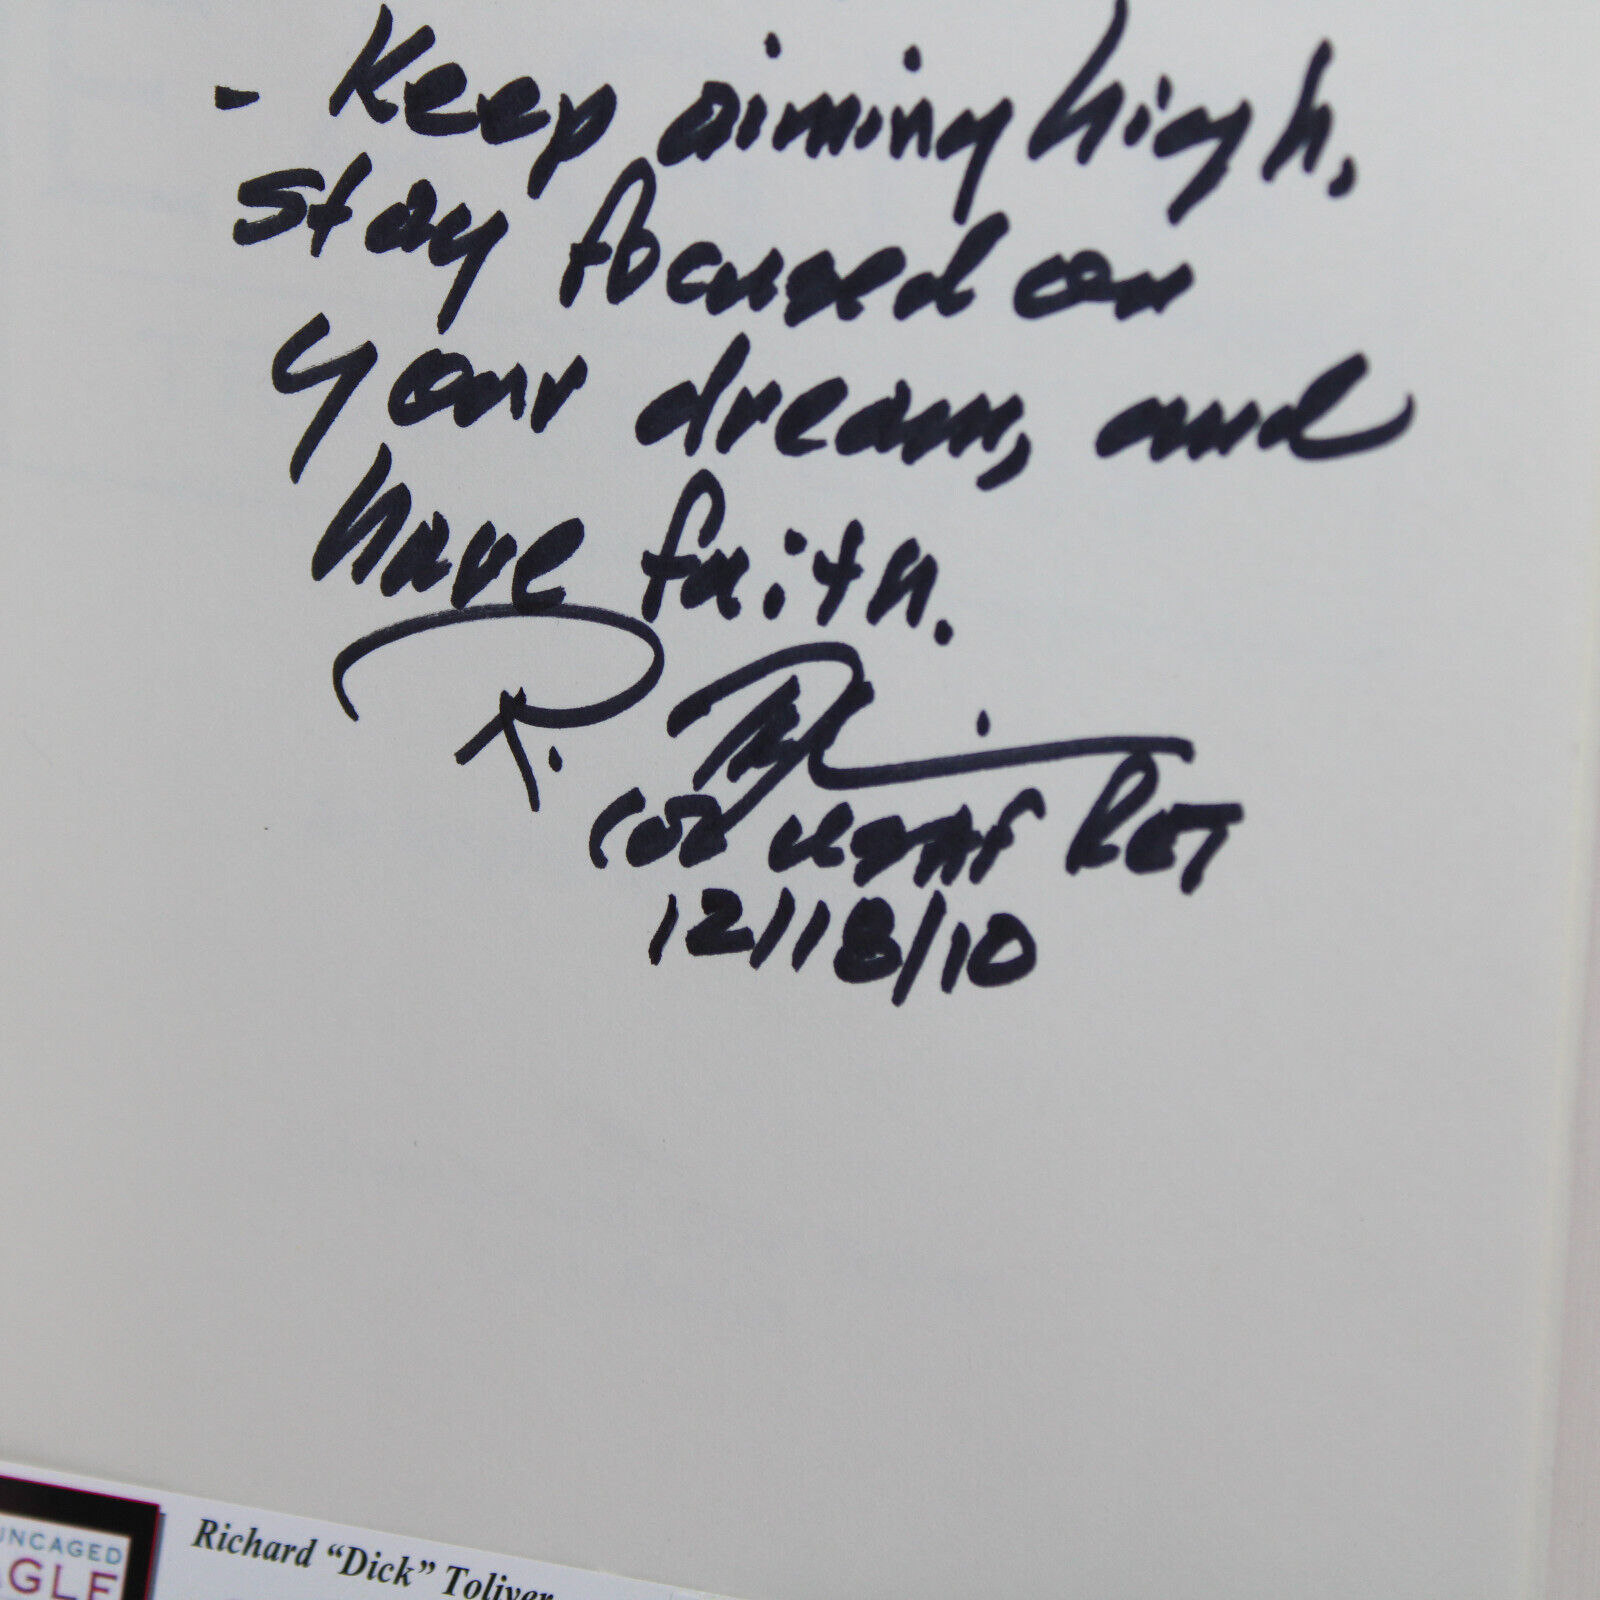 - Keep aiming high,
stay focused on
your dream, and
have faith.
R.
COL USAF RET
12/18/10
UNCAGED
AGLE
Richard “Dick” Toliver